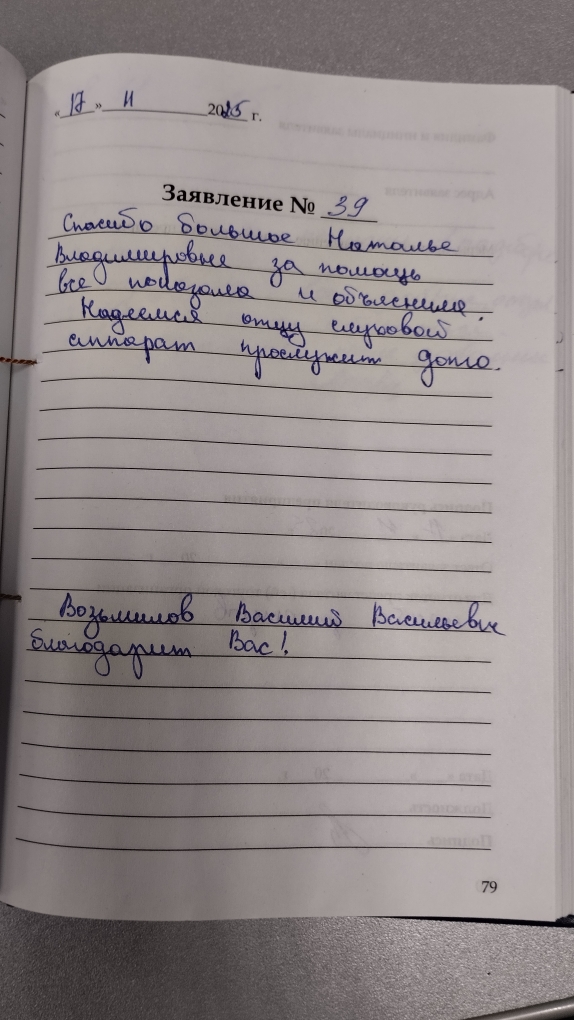 « 17 » 11 2025 г.
Заявление № 39
Спасибо большое Наталье
Владимировне за помощь
все показала и объяснила.
Надеемся отцу слуховой
аппарат прослужит долго.
Возьмилов Василий Васильевич
благодарит Вас!
79